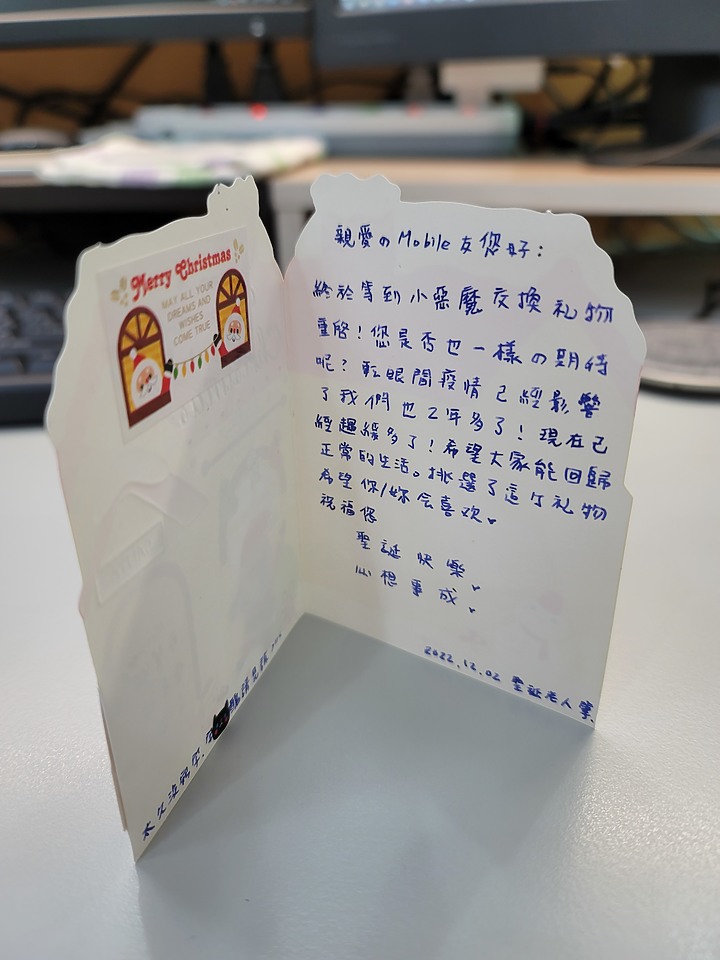 Merry Christmas
MAY ALL YOUR
DREAMS AND
WISHES
COME TRUE
太久沒寫字，字醜請見諒...
親愛のMobile友您好：
終於等到小惡魔交換礼物
重啓！您是否也一樣の期待
呢？転眼間疫情已經影響
了我們也2年多了！現在已
經趨緩多了！希望大家能回歸
正常的生活。挑選了這个礼物
希望你/妳会喜欢。
祝福您
聖誕快樂。
心想事成。
2022.12.02 聖誕老人筆.